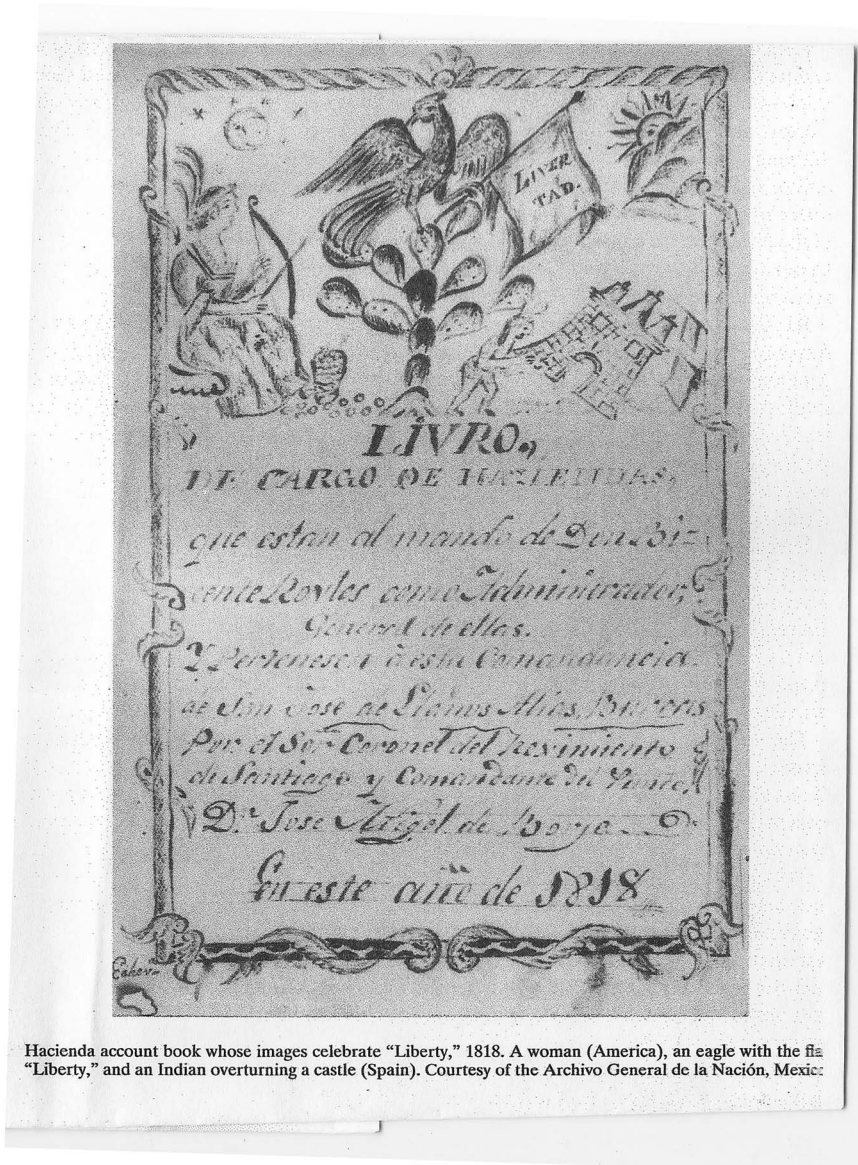 LIVER
TAD.
LIVRO,
DE CARGO DE HAZIENDAS,
que estan al mando de Don Bi-
cente Robles, como Administrador,
General de ellas.
Y Pertenesen à esta Comandancia
de San Jose de Llanos Alias,
Por el Sor. Coronel del Reximiento
de Santiago y Comandante del Punto,
Dn. Jose Angel de Borja
En este año de 1818
Hacienda account book whose images celebrate “Liberty,” 1818. A woman (America), an eagle with the
“Liberty,” and an Indian overturning a castle (Spain). Courtesy of the Archivo General de la Nación,